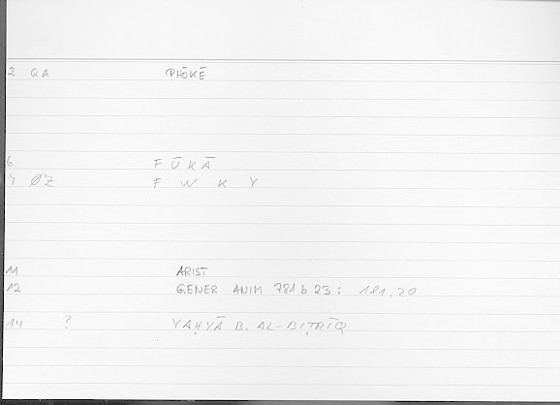 2 QA PHŌKĒ
6 F Ū K Ā
7 ØZ F W K Y
11 ARIST
12 GENER ANIM 781 b 23 : 181.20
14 ? YAḤYĀ B. AL-BIṬRĪQ